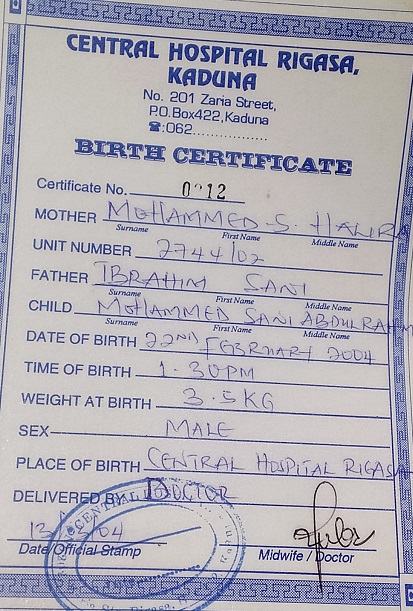 CENTRAL HOSPITAL RIGASA,
KADUNA
No. 201 Zaria Street,
P.O.Box422,Kaduna
☎:062..................
BIRTH CERTIFICATE
Certificate No. 0212
MOTHER MOHAMMED S. HALIRA
Surname First Name Middle Name
UNIT NUMBER 2744/02
FATHER IBRAHIM SANI
Surname First Name Middle Name
CHILD MOHAMMED SANI ABDULRAHM
Surname First Name Middle Name
DATE OF BIRTH 22ND FEBRUARY 2004
TIME OF BIRTH 1.30PM
WEIGHT AT BIRTH 3.5KG
SEX MALE
PLACE OF BIRTH CENTRAL HOSPITAL RIGASA
DELIVERED BY DOCTOR
Date/Official Stamp Midwife / Doctor